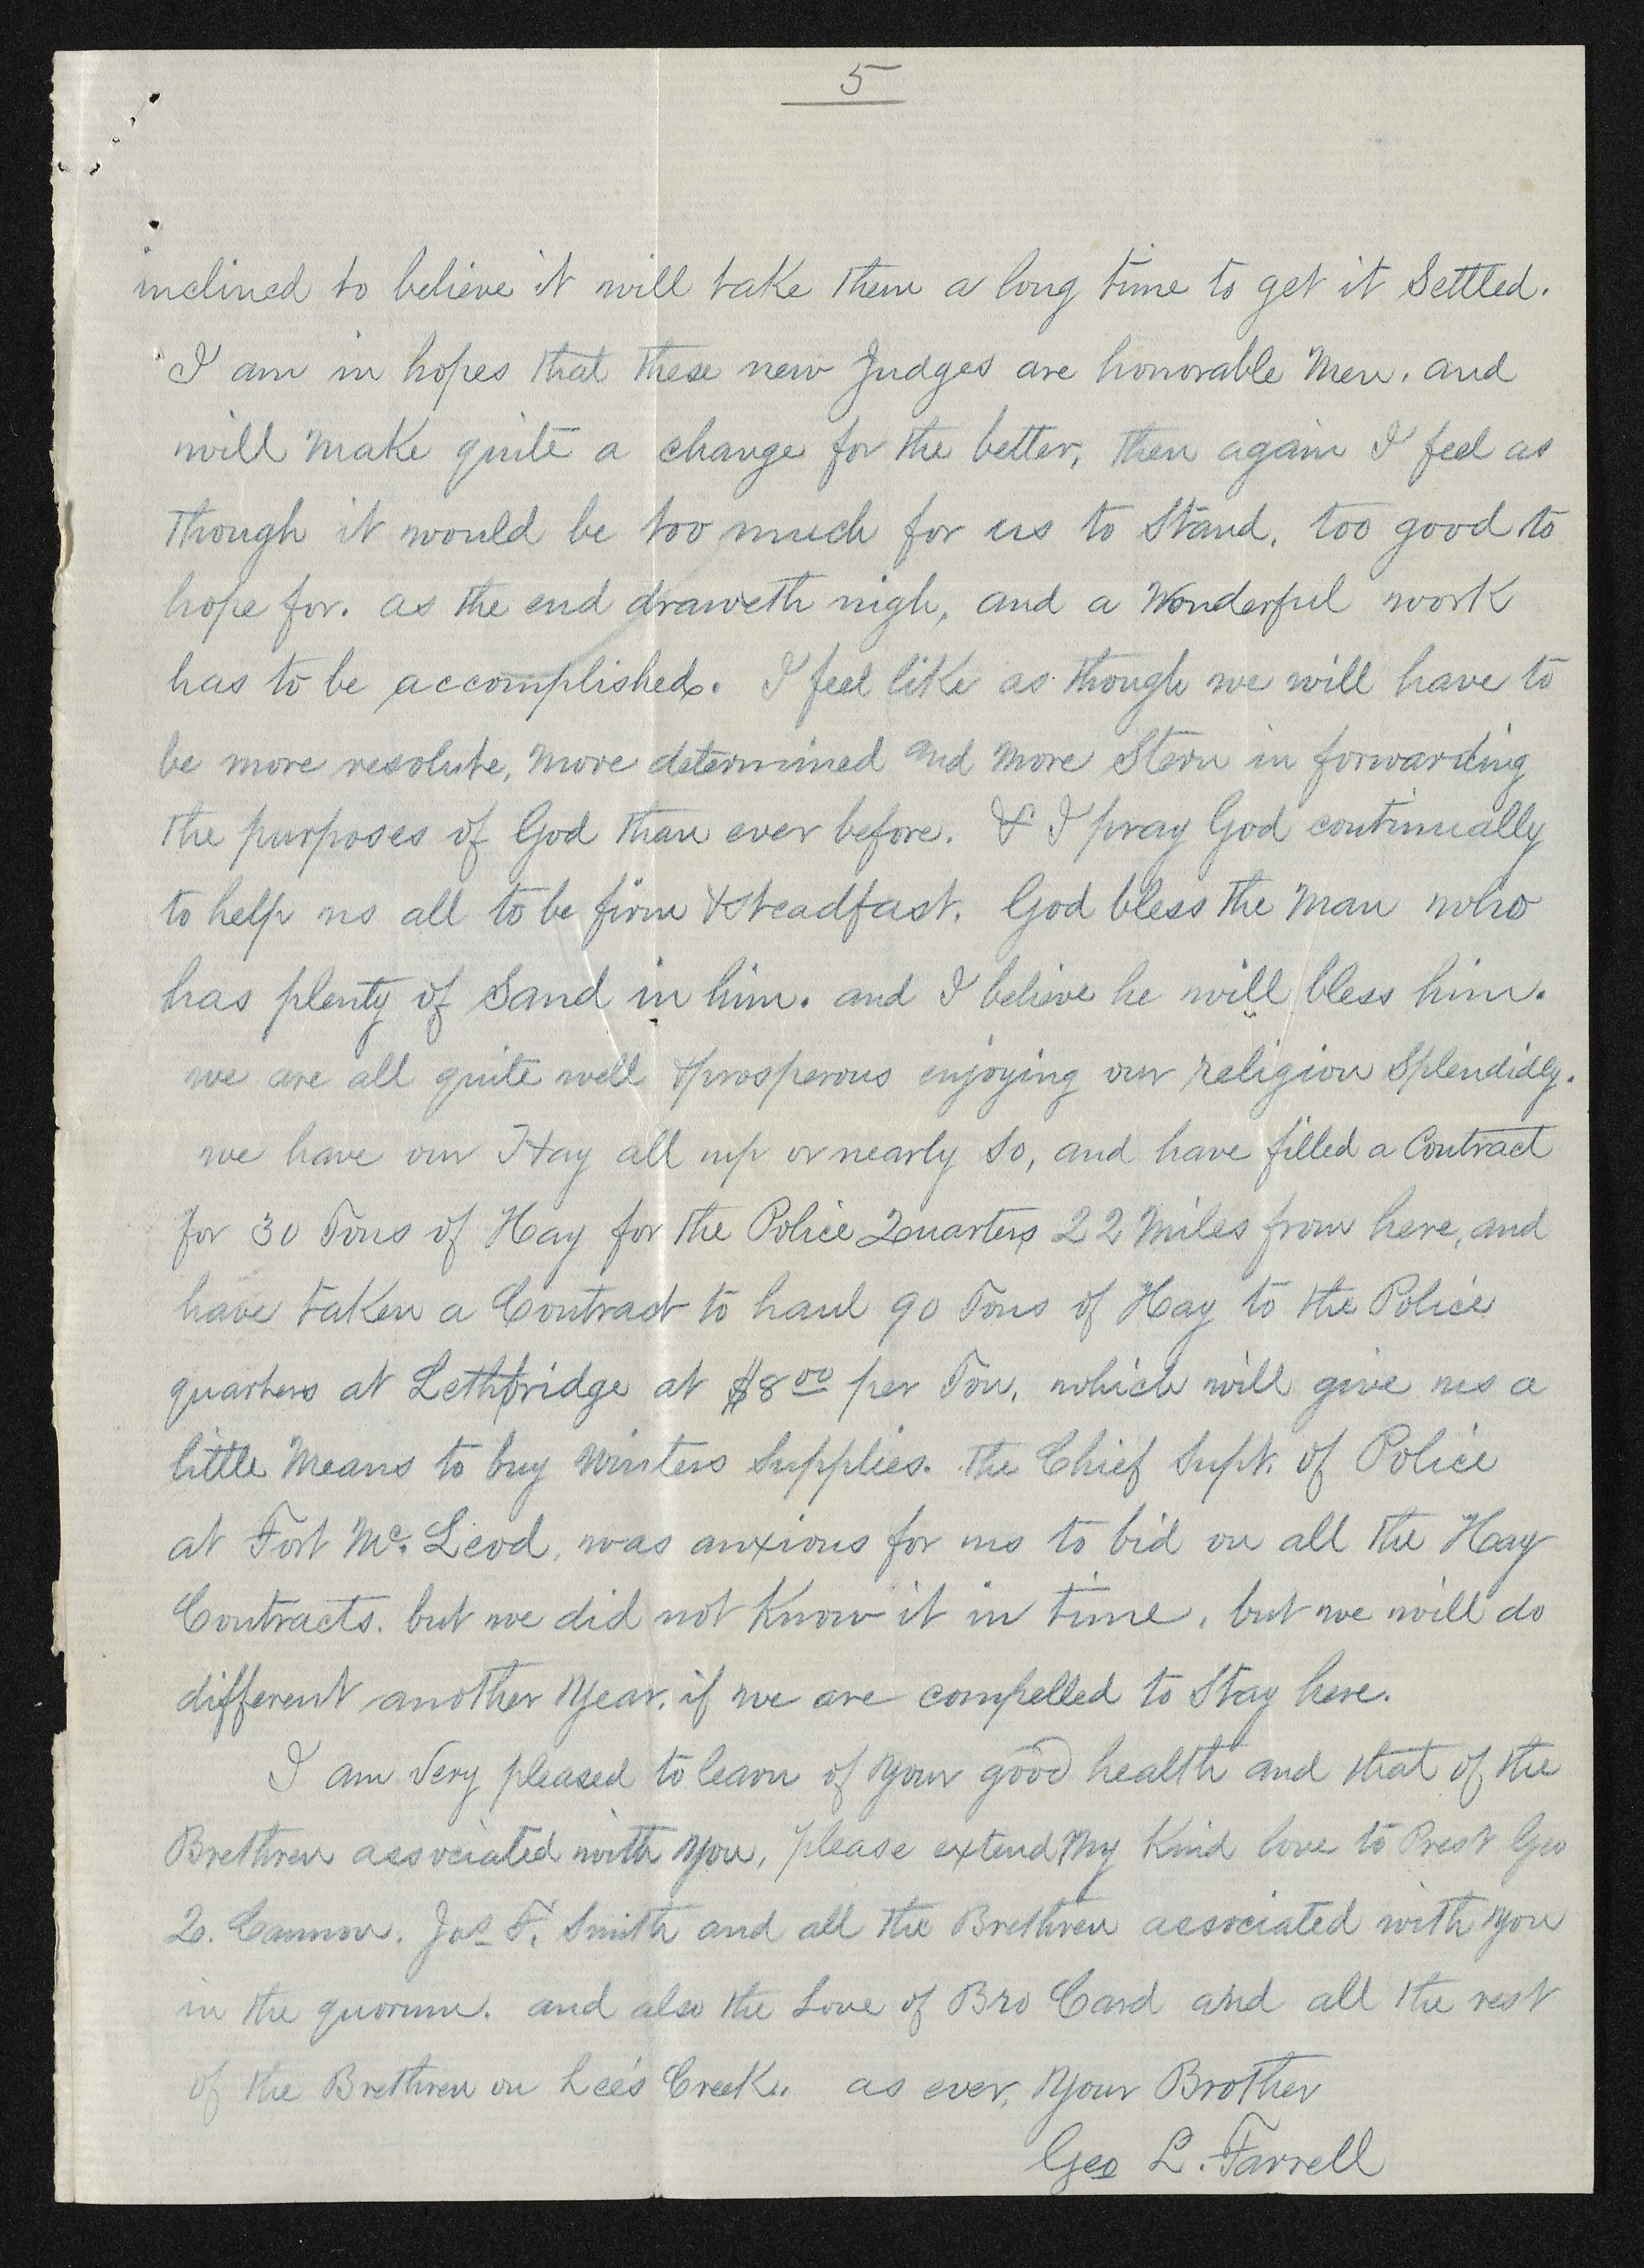 5
inclined to believe it will take them a long time to get it Settled.
I am in hopes that these new Judges are honorable Men. and
will Make quite a change for the better, then again I feel as
though it would be too much for us to Stand, too good to
hope for. as the end draweth nigh, and a Wonderful work
has to be accomplished. I feel like as though we will have to
be more resolute, More determined and More Stern in forwarding
the purposes of God than ever before. & I pray God continually
to help us all to be firm & steadfast. God bless the Man who
has plenty of Sand in him. and I believe he will bless him.
we are all quite well & prosperous enjoying our religion Splendidly.
we have our Hay all up or nearly So, and have filled a Contract
for 30 Tons of Hay for the Police Quarters 22 Miles from here, and
have taken a Contract to haul 90 Tons of Hay to the Police
quarters at Lethbridge at $8 00 per Ton, which will give us a
little Means to buy Winters Supplies. the Chief Supt. of Police
at Fort Mc. Leod, was anxious for us to bid on all the Hay
Contracts. but we did not Know it in time, but we will do
different another Year, if we are compelled to Stay here.
I am Very pleased to learn of Your good health and that of the
Brethren associated with You, please extend My Kind love to Prest Geo
Q. Cannon. Jos F. Smith and all the Brethren associated with You
in the quorum. and also the Love of Bro Card and all the rest
of the Brethren on Lee's Creek. as ever, Your Brother
Geo L. Farrell